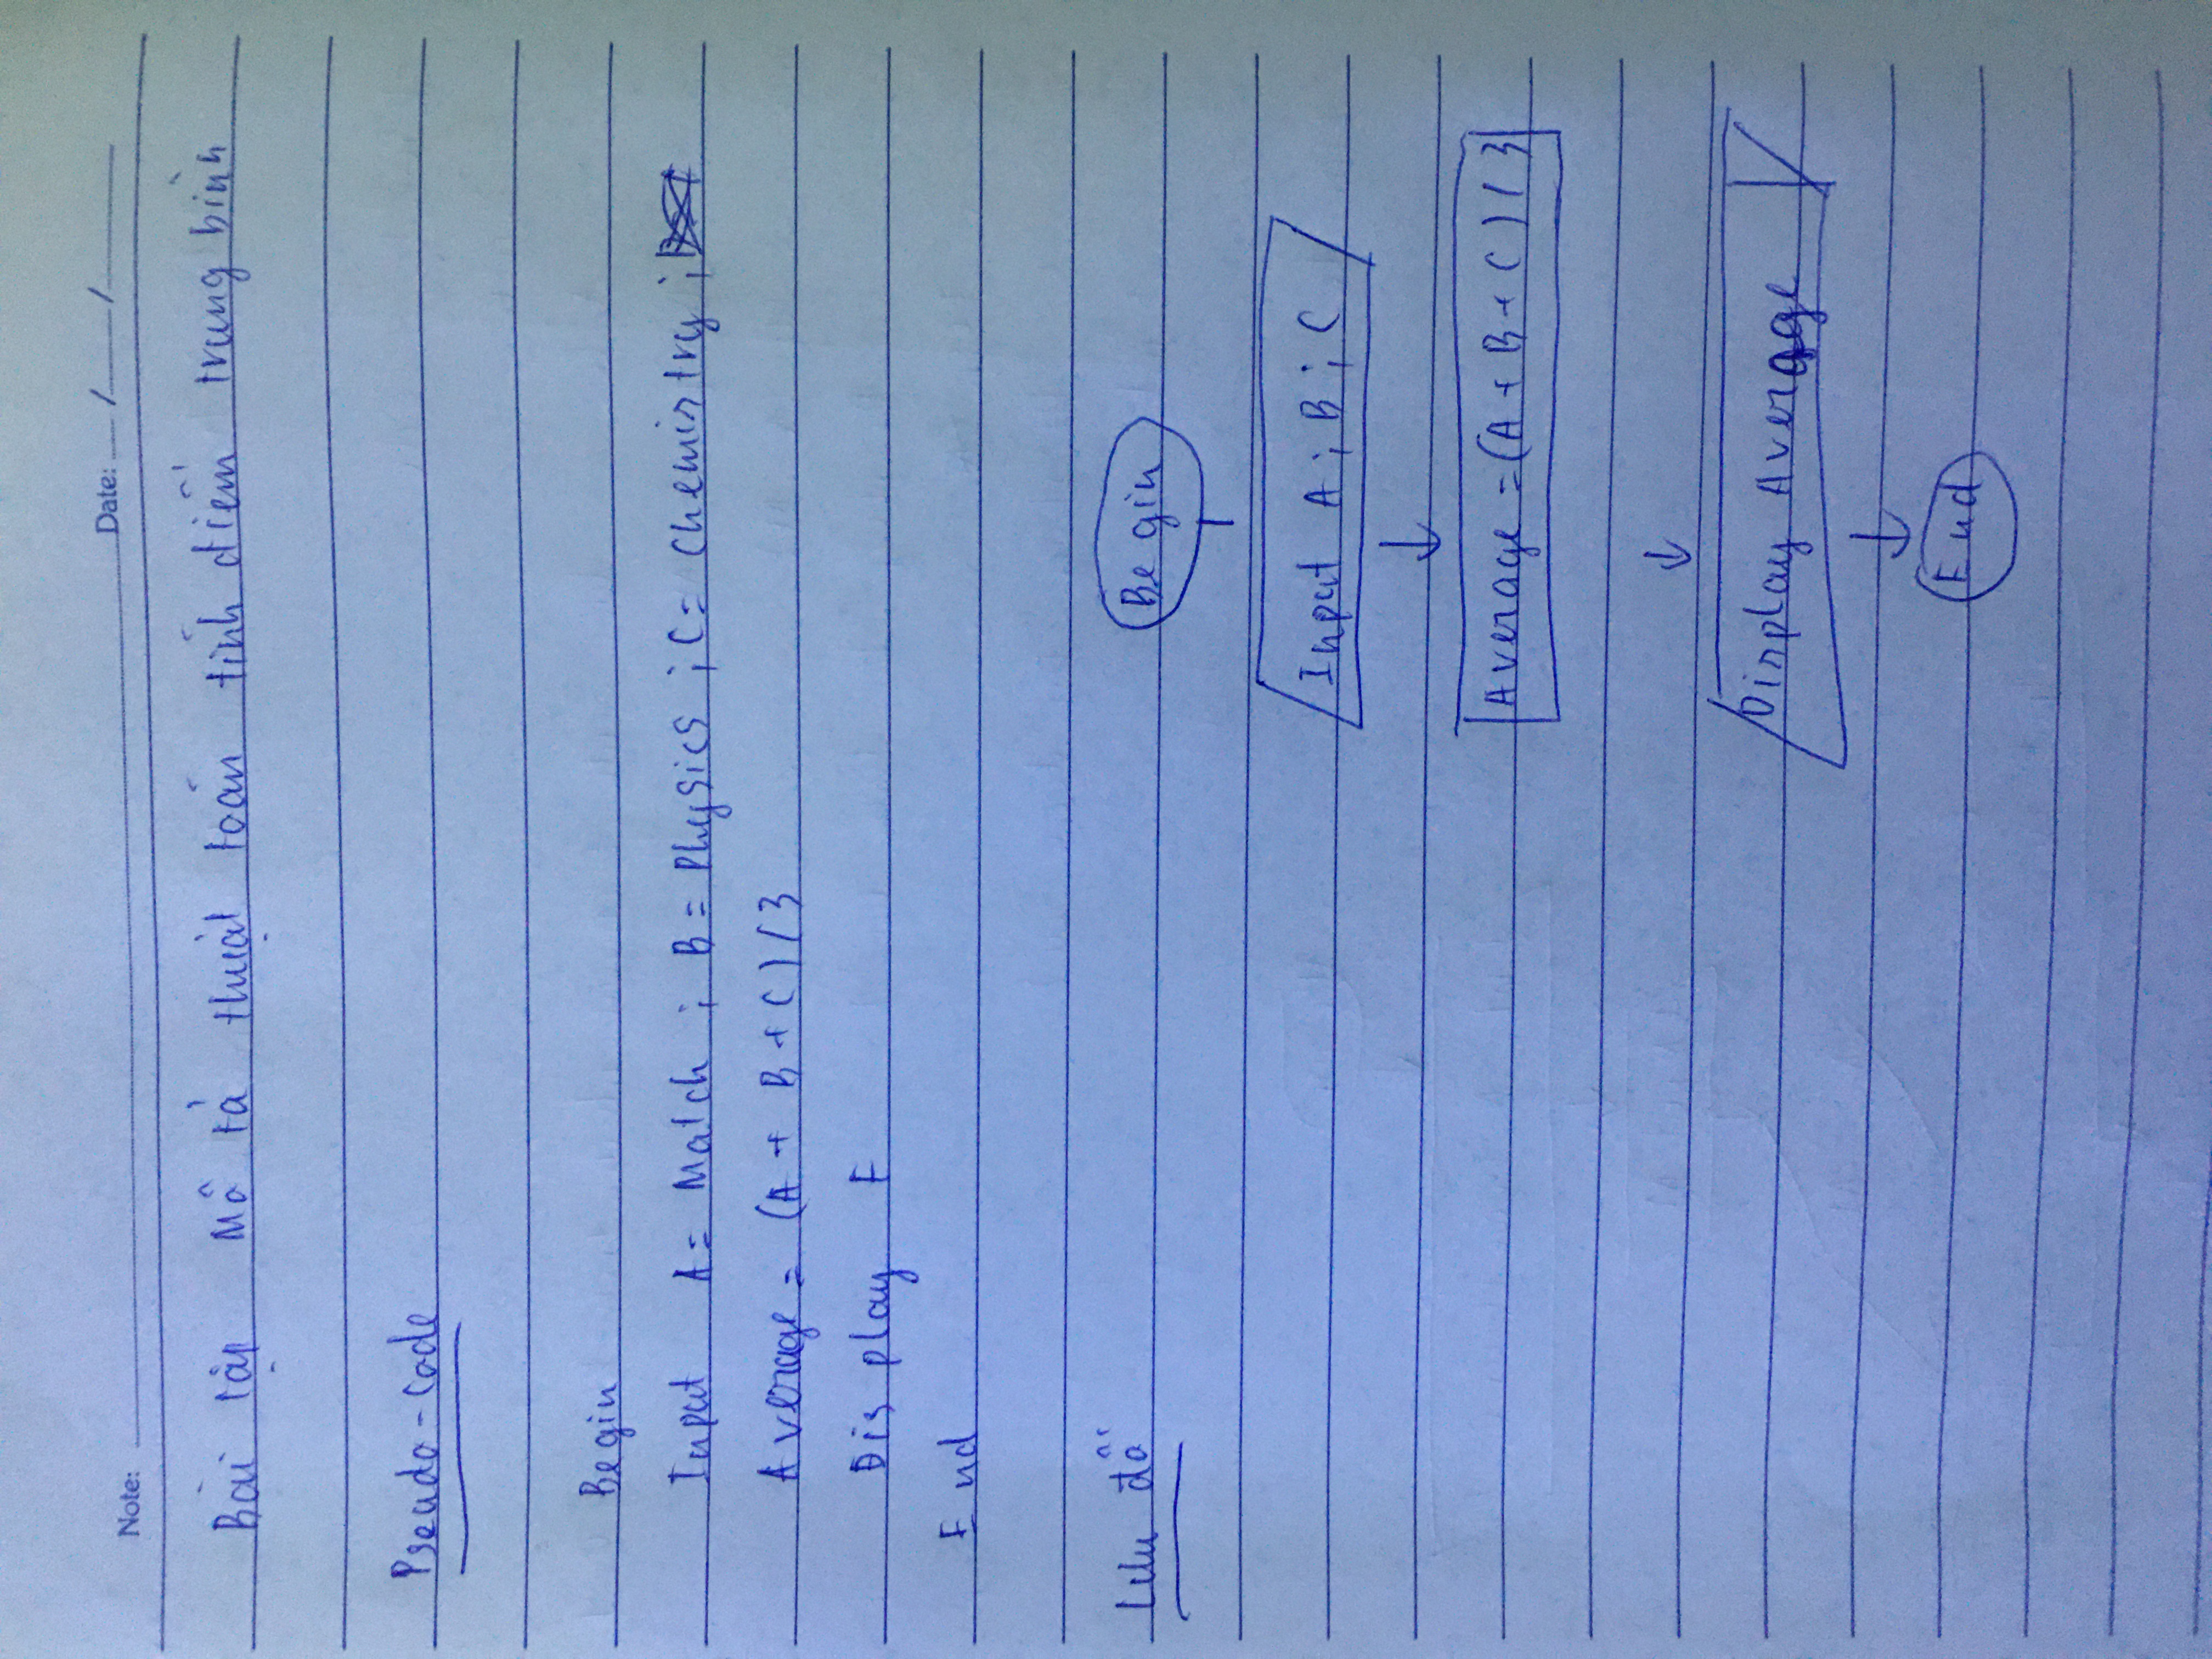 Note: Date: / /
Bài tập Mô tả thuật toán tính điểm trung bình
Pseudo-Code
Begin
Input A = Match ; B = Physics ; C = Chemistry ;
Average = (A + B + C) / 3
Display E
End
Lưu đồ
Begin
Input A ; B ; C
Average = (A + B + C) / 3
Display Average
End